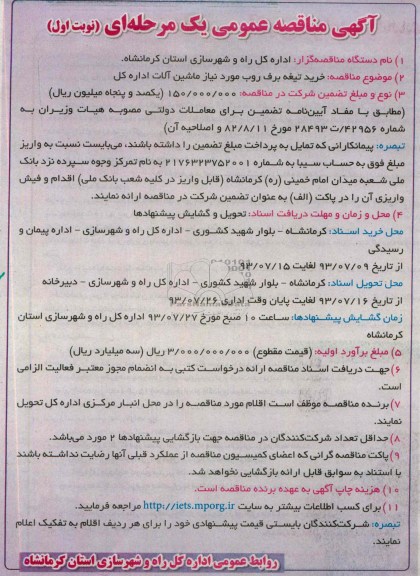 آگهی مناقصه عمومی یک مرحله‌ای (نوبت اول)
۱) نام دستگاه مناقصه‌گزار: اداره کل راه و شهرسازی استان کرمانشاه.
۲) موضوع مناقصه: خرید تیغه برف روب مورد نیاز ماشین آلات اداره کل
۳) نوع و مبلغ تضمین شرکت در مناقصه: ۱۵۰/۰۰۰/۰۰۰ (یکصد و پنجاه میلیون ریال)
(مطابق با مفاد آیین‌نامه تضمین برای معاملات دولتی مصوبه هیات وزیران به شماره ۴۲۹۵۶/ت ۲۸۴۹۳ مورخ ۸۲/۸/۱۱ و اصلاحیه آن)
تبصره: پیمانکارانی که تمایل به پرداخت مبلغ تضمین را داشته باشند، می‌بایست نسبت به واریز
مبلغ فوق به حساب سیبا به شماره ۲۱۷۶۳۲۳۷۵۲۰۰۱ به نام تمرکز وجوه سپرده نزد بانک
ملی شعبه میدان امام خمینی (ره) کرمانشاه (قابل واریز در کلیه شعب بانک ملی) اقدام و فیش
واریزی آن را در پاکت (الف) به عنوان تضمین شرکت در مناقصه ارائه نمایند.
۴) محل و زمان و مهلت دریافت اسناد: تحویل و گشایش پیشنهادها
محل خرید اسناد: کرمانشاه - بلوار شهید کشوری - اداره کل راه و شهرسازی - اداره پیمان و
رسیدگی
از تاریخ ۹۳/۰۷/۰۹ لغایت ۹۳/۰۷/۱۵
محل تحویل اسناد: کرمانشاه - بلوار شهید کشوری - اداره کل راه و شهرسازی - دبیرخانه
از تاریخ ۹۳/۰۷/۱۶ لغایت پایان وقت اداری ۹۳/۰۷/۲۶
زمان گشایش پیشنهادها: ساعت ۱۰ صبح مورخ ۹۳/۰۷/۲۷ اداره کل راه و شهرسازی استان
کرمانشاه
۵) مبلغ برآورد اولیه: (قیمت مقطوع) ۳/۰۰۰/۰۰۰/۰۰۰ ریال (سه میلیارد ریال)
۶) جهت دریافت اسناد مناقصه ارائه درخواست کتبی به انضمام مجوز معتبر فعالیت الزامی
است.
۷) برنده مناقصه موظف است اقلام مورد مناقصه را در محل انبار مرکزی اداره کل تحویل
نمایند.
۸) حداقل تعداد شرکت‌کنندگان در مناقصه جهت بازگشایی پیشنهادها ۲ مورد می‌باشد.
۹) پاکت مناقصه گرانی که اعضای کمیسیون مناقصه از عملکرد قبلی آنها رضایت نداشته باشند
با استناد به سوابق قابل ارائه بازگشایی نخواهد شد.
۱۰) هزینه چاپ آگهی به عهده برنده مناقصه است.
۱۱) برای کسب اطلاعات بیشتر به سایت http://iets.mporg.ir مراجعه فرمایید.
تبصره: شرکت‌کنندگان بایستی قیمت پیشنهادی خود را برای هر ردیف اقلام به تفکیک اعلام
نمایند.
روابط عمومی اداره کل راه و شهرسازی استان کرمانشاه